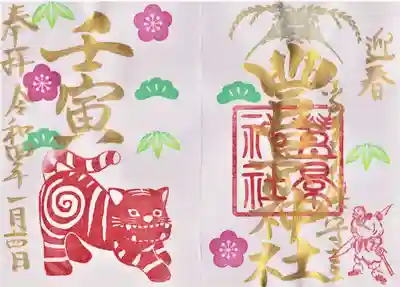 迎春
豊景神社
豊景
神社
壬寅
奉拝 令和四年 一月四日